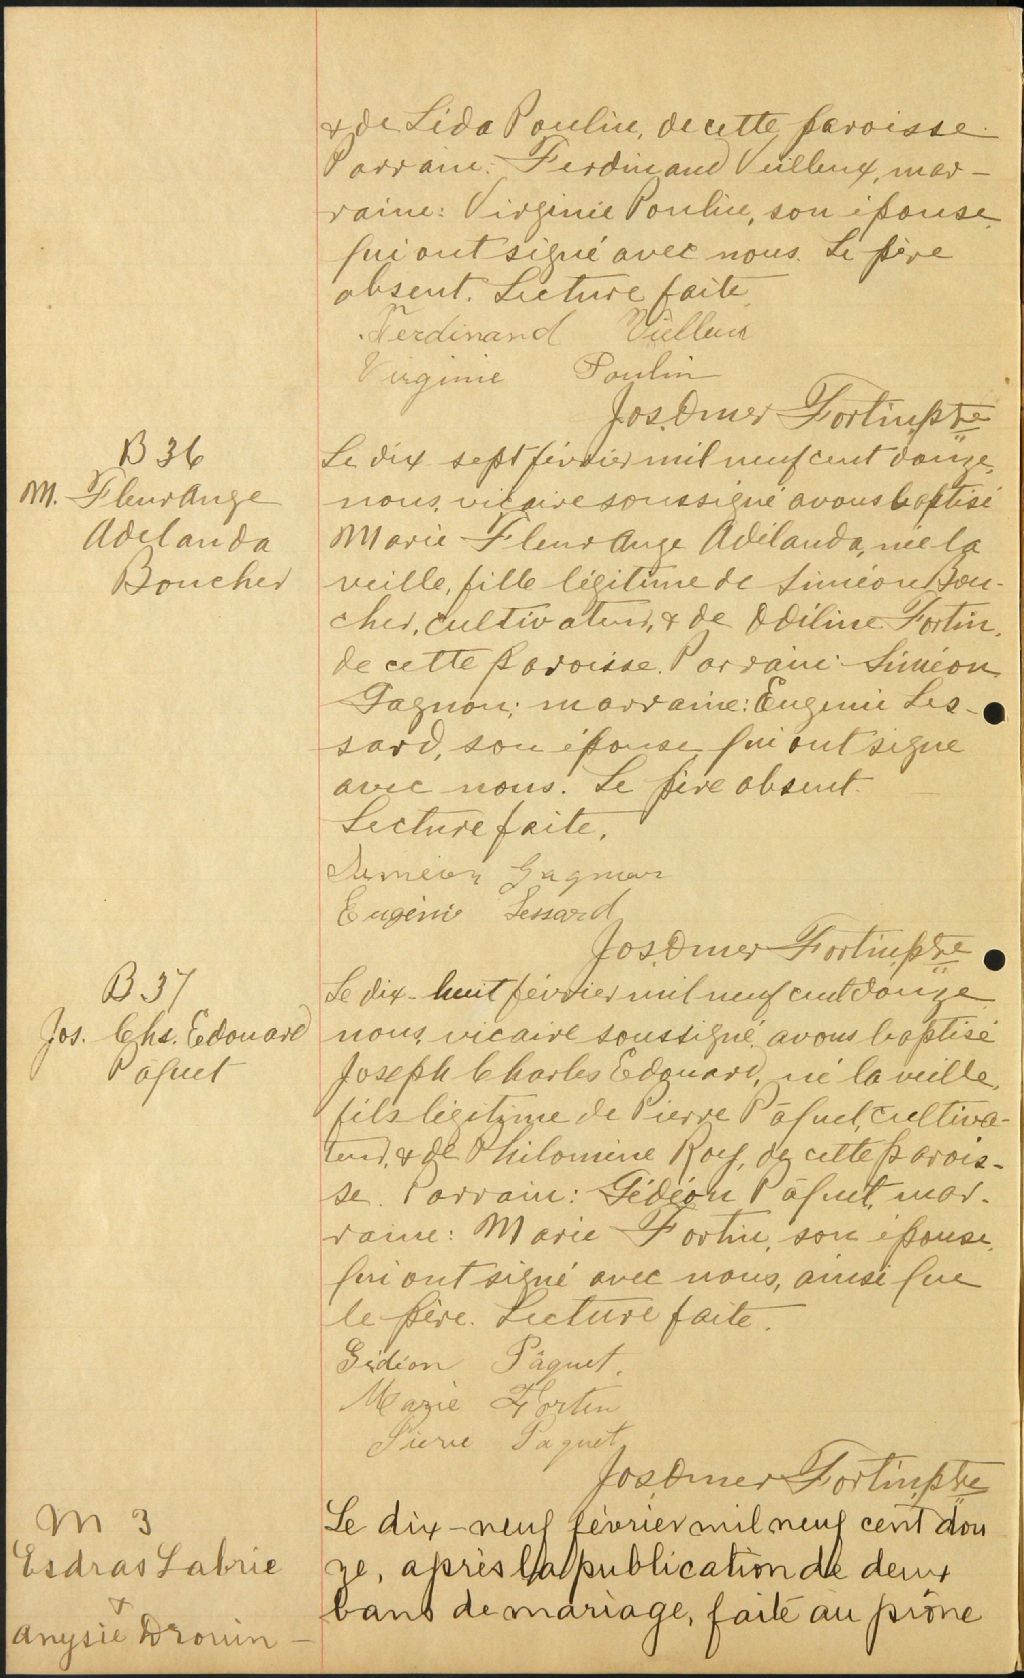 & de Lida Poulin, de cette paroisse.
Parrain: Ferdinand Veilleux, mar-
raine: Virginie Poulin, son épouse,
qui ont signé avec nous. Le père
absent. Lecture faite.
Ferdinand Vielleux
Virginie Poulin
Jos. Omer Fortin, ptre
B 36
M. Fleur Ange
Adelanda
Boucher
Le dix sept février mil neuf cent douze,
nous, vicaire soussigné avons baptisé
Marie Fleur Ange Adélanda, née la
veille, fille légitime de Siméon Bou-
cher, cultivateur, & de Odéline Fortin,
de cette paroisse. Parrain: Siméon
Gagnon; marraine: Eugenie Les-
sard, son épouse qui ont signe
avec nous. Le père absent.
Lecture faite.
Simeon Gagnon
Eugénie Lessard
Jos. Omer Fortin, ptre
B 37
Jos. Chs. Edouard
Pâquet
Le dix-huit février mil neuf cent douze
nous, vicaire soussigné, avons baptisé
Joseph Charles Edouard, né la veille,
fils légitime de Pierre Pâquet, cultiva-
teur, & de Philomène Roy, de cette parois-
se. Parrain: Gédéon Pâquet, mar-
raine: Marie Fortin, son épouse,
qui ont signé avec nous, ainsi que
le père. Lecture faite.
Gédéon Pâquet.
Marie Fortin
Pierre Paquet
Jos. Omer Fortin, ptre
M 3
Esdras Labrie
&
Anysie Drouin -
Le dix-neuf février mil neuf cent dou
ze, après la publication de deux
bans de mariage, faite au prône